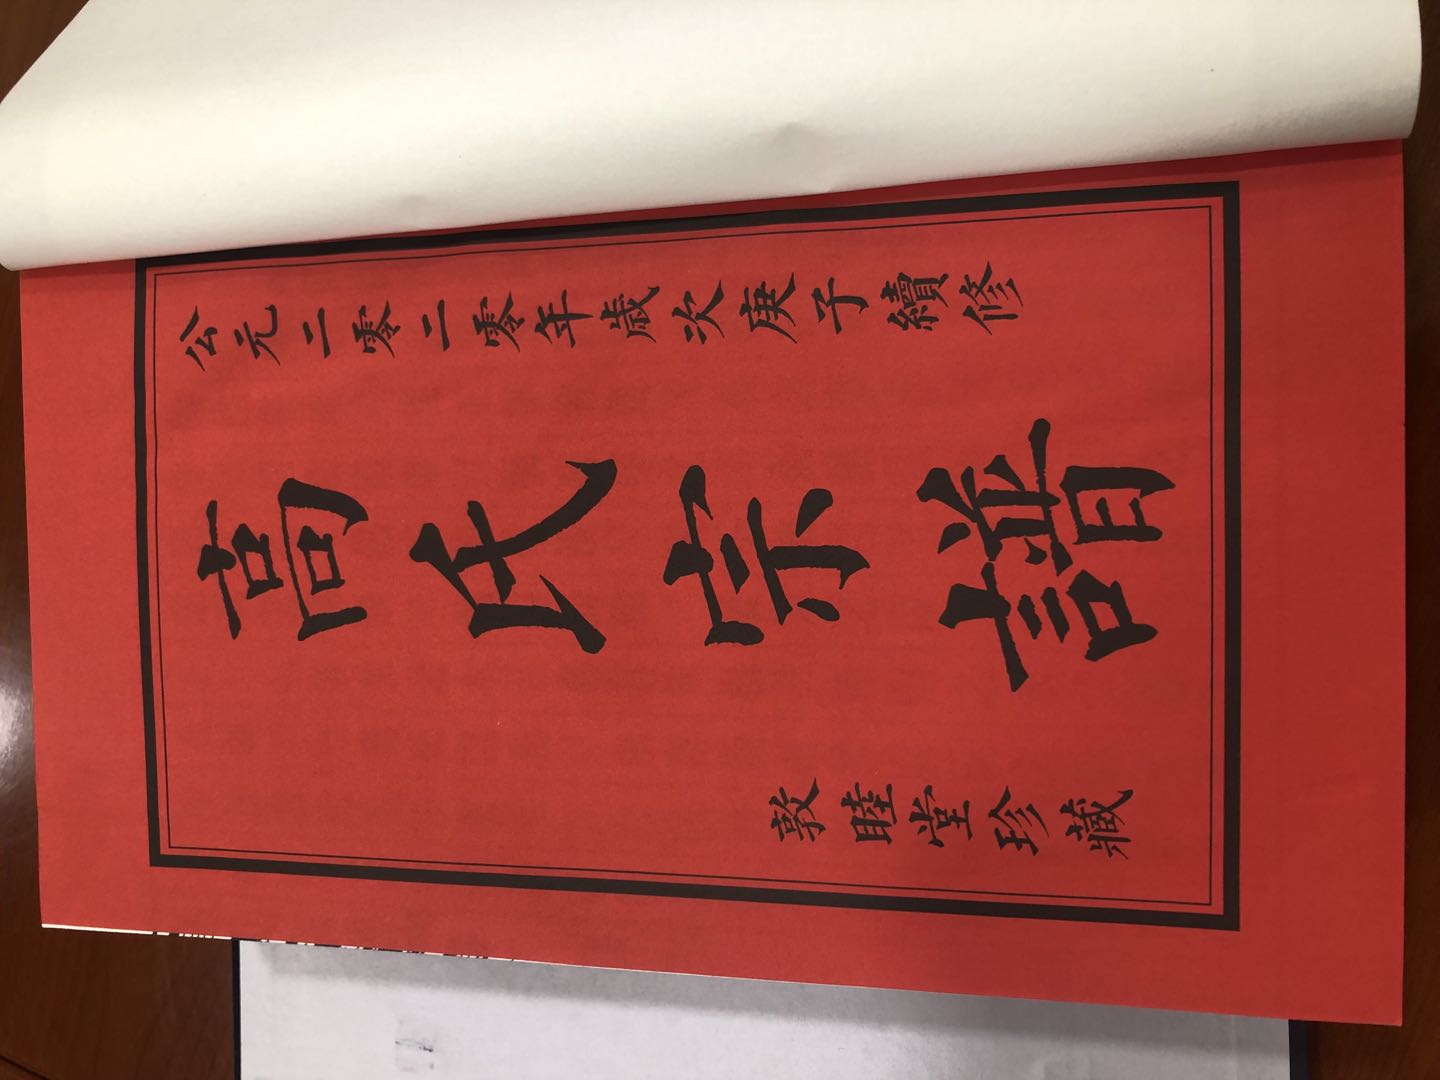 公元二零二零年歲次庚子續修
高氏宗譜
敦睦堂珍藏